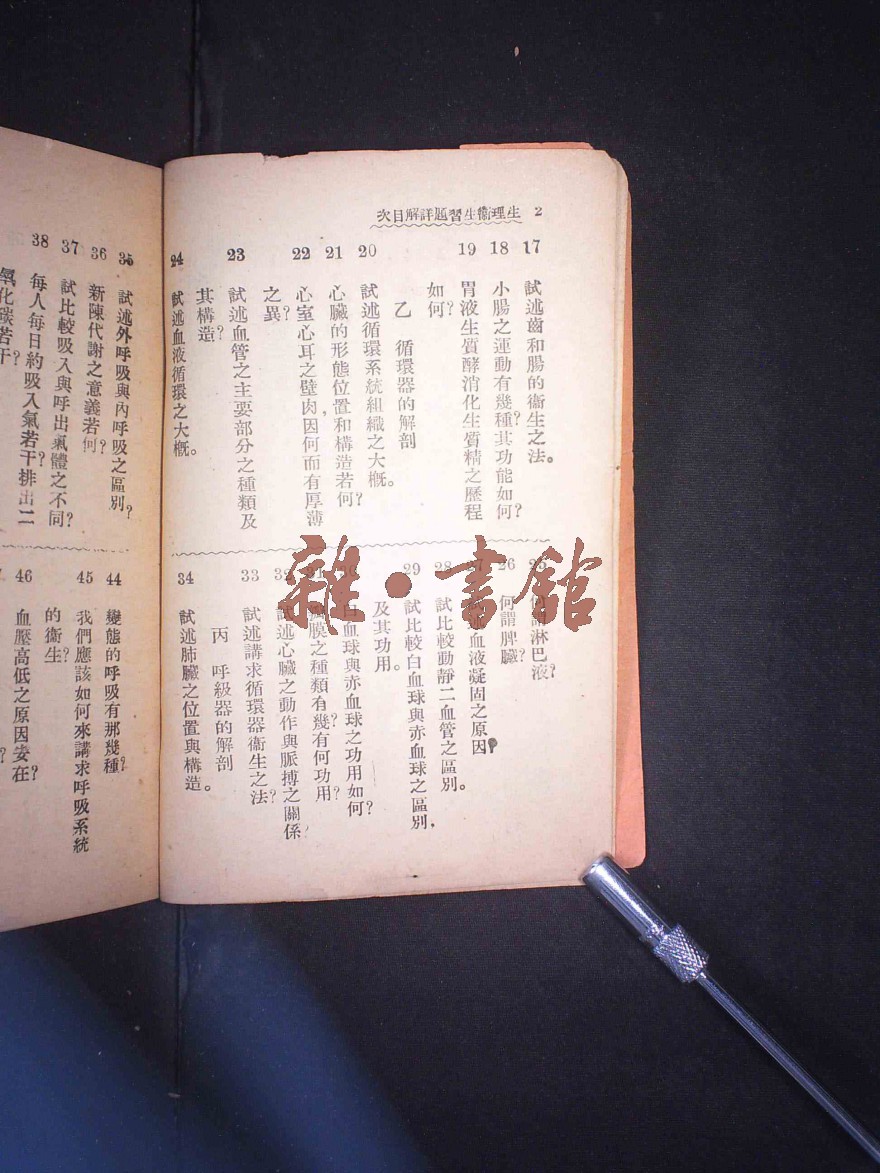 2 生理衞生習題詳解目次
17 試述齒和腸的衞生之法。
18 小腸之運動有幾種?其功能如何?
19 胃液生質酵消化生質精之歷程
如何?
乙 循環器的解剖
20 試述循環系統組織之大槪。
21 心臟的形態位置和構造若何?
22 心室心耳之壁肉,因何而有厚薄
之異?
23 試述血管之主要部分之種類及
其構造?
24 試述血液循環之大槪。
25 淋巴液?
26 何謂脾臟?
27 述血液凝固之原因?
28 試比較動靜二血管之區別。
29 試比較白血球與赤血球之區別,
及其功用。
白血球與赤血球之功用如何?
31 膜之種類有幾?有何功用?
32 試述心臟之動作與脈搏之關係
33 試述講求循環器衞生之法?
丙 呼級器的解剖
34 試述肺臟之位置與構造。
35 試述外呼吸與內呼吸之區別?
36 新陳代謝之意義若何?
37 試比較吸入與呼出氣體之不同?
38 每人每日約吸入氣若干?排出二
氧化碳若干?
44 變態的呼吸有那幾種?
45 我們應該如何來講求呼吸系統
的衞生?
46 血壓高低之原因安在?
雜·書館